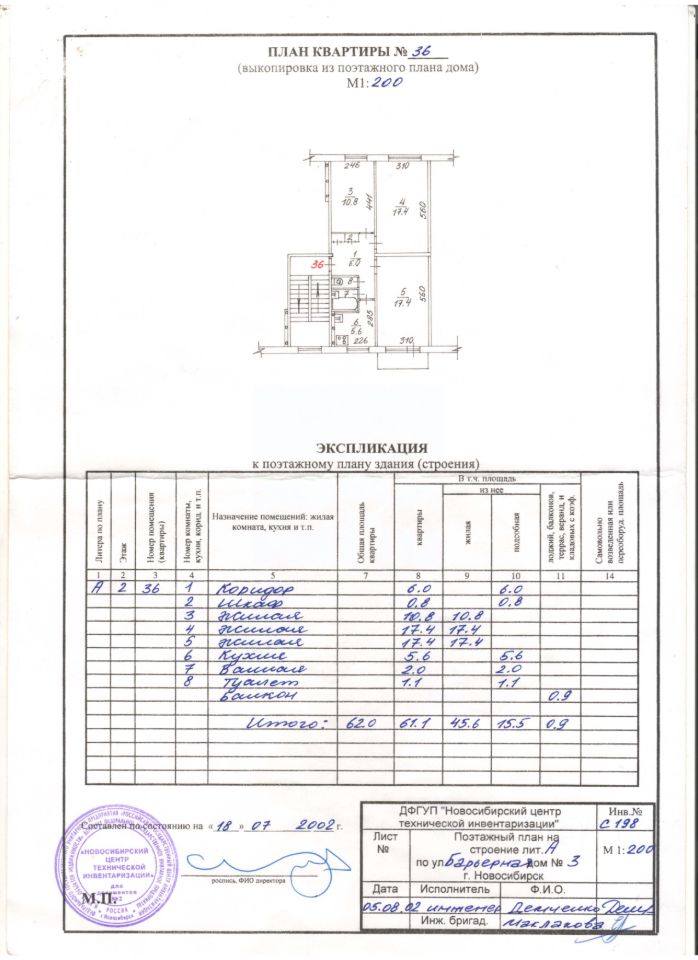 ПЛАН КВАРТИРЫ № 36
(выкопировка из поэтажного плана дома)
М1:200
246
310
3
10.8
441
4
17.4
560
2
1
6.0
36
8
7
5
17.4
560
6
5.6
285
226
310
ЭКСПЛИКАЦИЯ
к поэтажному плану здания (строения)
Литера по плану
Этаж
Номер помещения (квартиры)
Номер комнаты, кухни, корид. и т.п.
Назначение помещений: жилая комната, кухня и т.п.
Общая площадь квартиры
В т.ч. площадь
из нее
квартиры
жилая
подсобная
лоджий, балконов, террас, веранд, и кладовых с коэф.
Самовольно возведенная или переоборуд. площадь
1 2 3 4 5 7 8 9 10 11 14
А 2 36 1 Коридор 6.0 6.0
2 Шкаф 0.8 0.8
3 Жилая 10.8 10.8
4 Жилая 17.4 17.4
5 Жилая 17.4 17.4
6 Кухня 5.6 5.6
7 Ванная 2.0 2.0
8 Туалет 1.1 1.1
Балкон 0.9
Итого: 62.0 61.1 45.6 15.5 0.9
Составлен по состоянию на «18» 07 2002 г.
роспись, ФИО директора
М.П.
«НОВОСИБИРСКИЙ
ЦЕНТР
ТЕХНИЧЕСКОЙ
ИНВЕНТАРИЗАЦИИ»
для
документов
ДФГУП "Новосибирский центр
технической инвентаризации"
Инв.№
С 198
Лист
№
Поэтажный план на
строение лит. А
по ул Барьерная дом № 3
г. Новосибирск
М 1:200
Дата Исполнитель Ф.И.О.
05.08.02 инженер Демченко
Инж. бригад. Маклакова